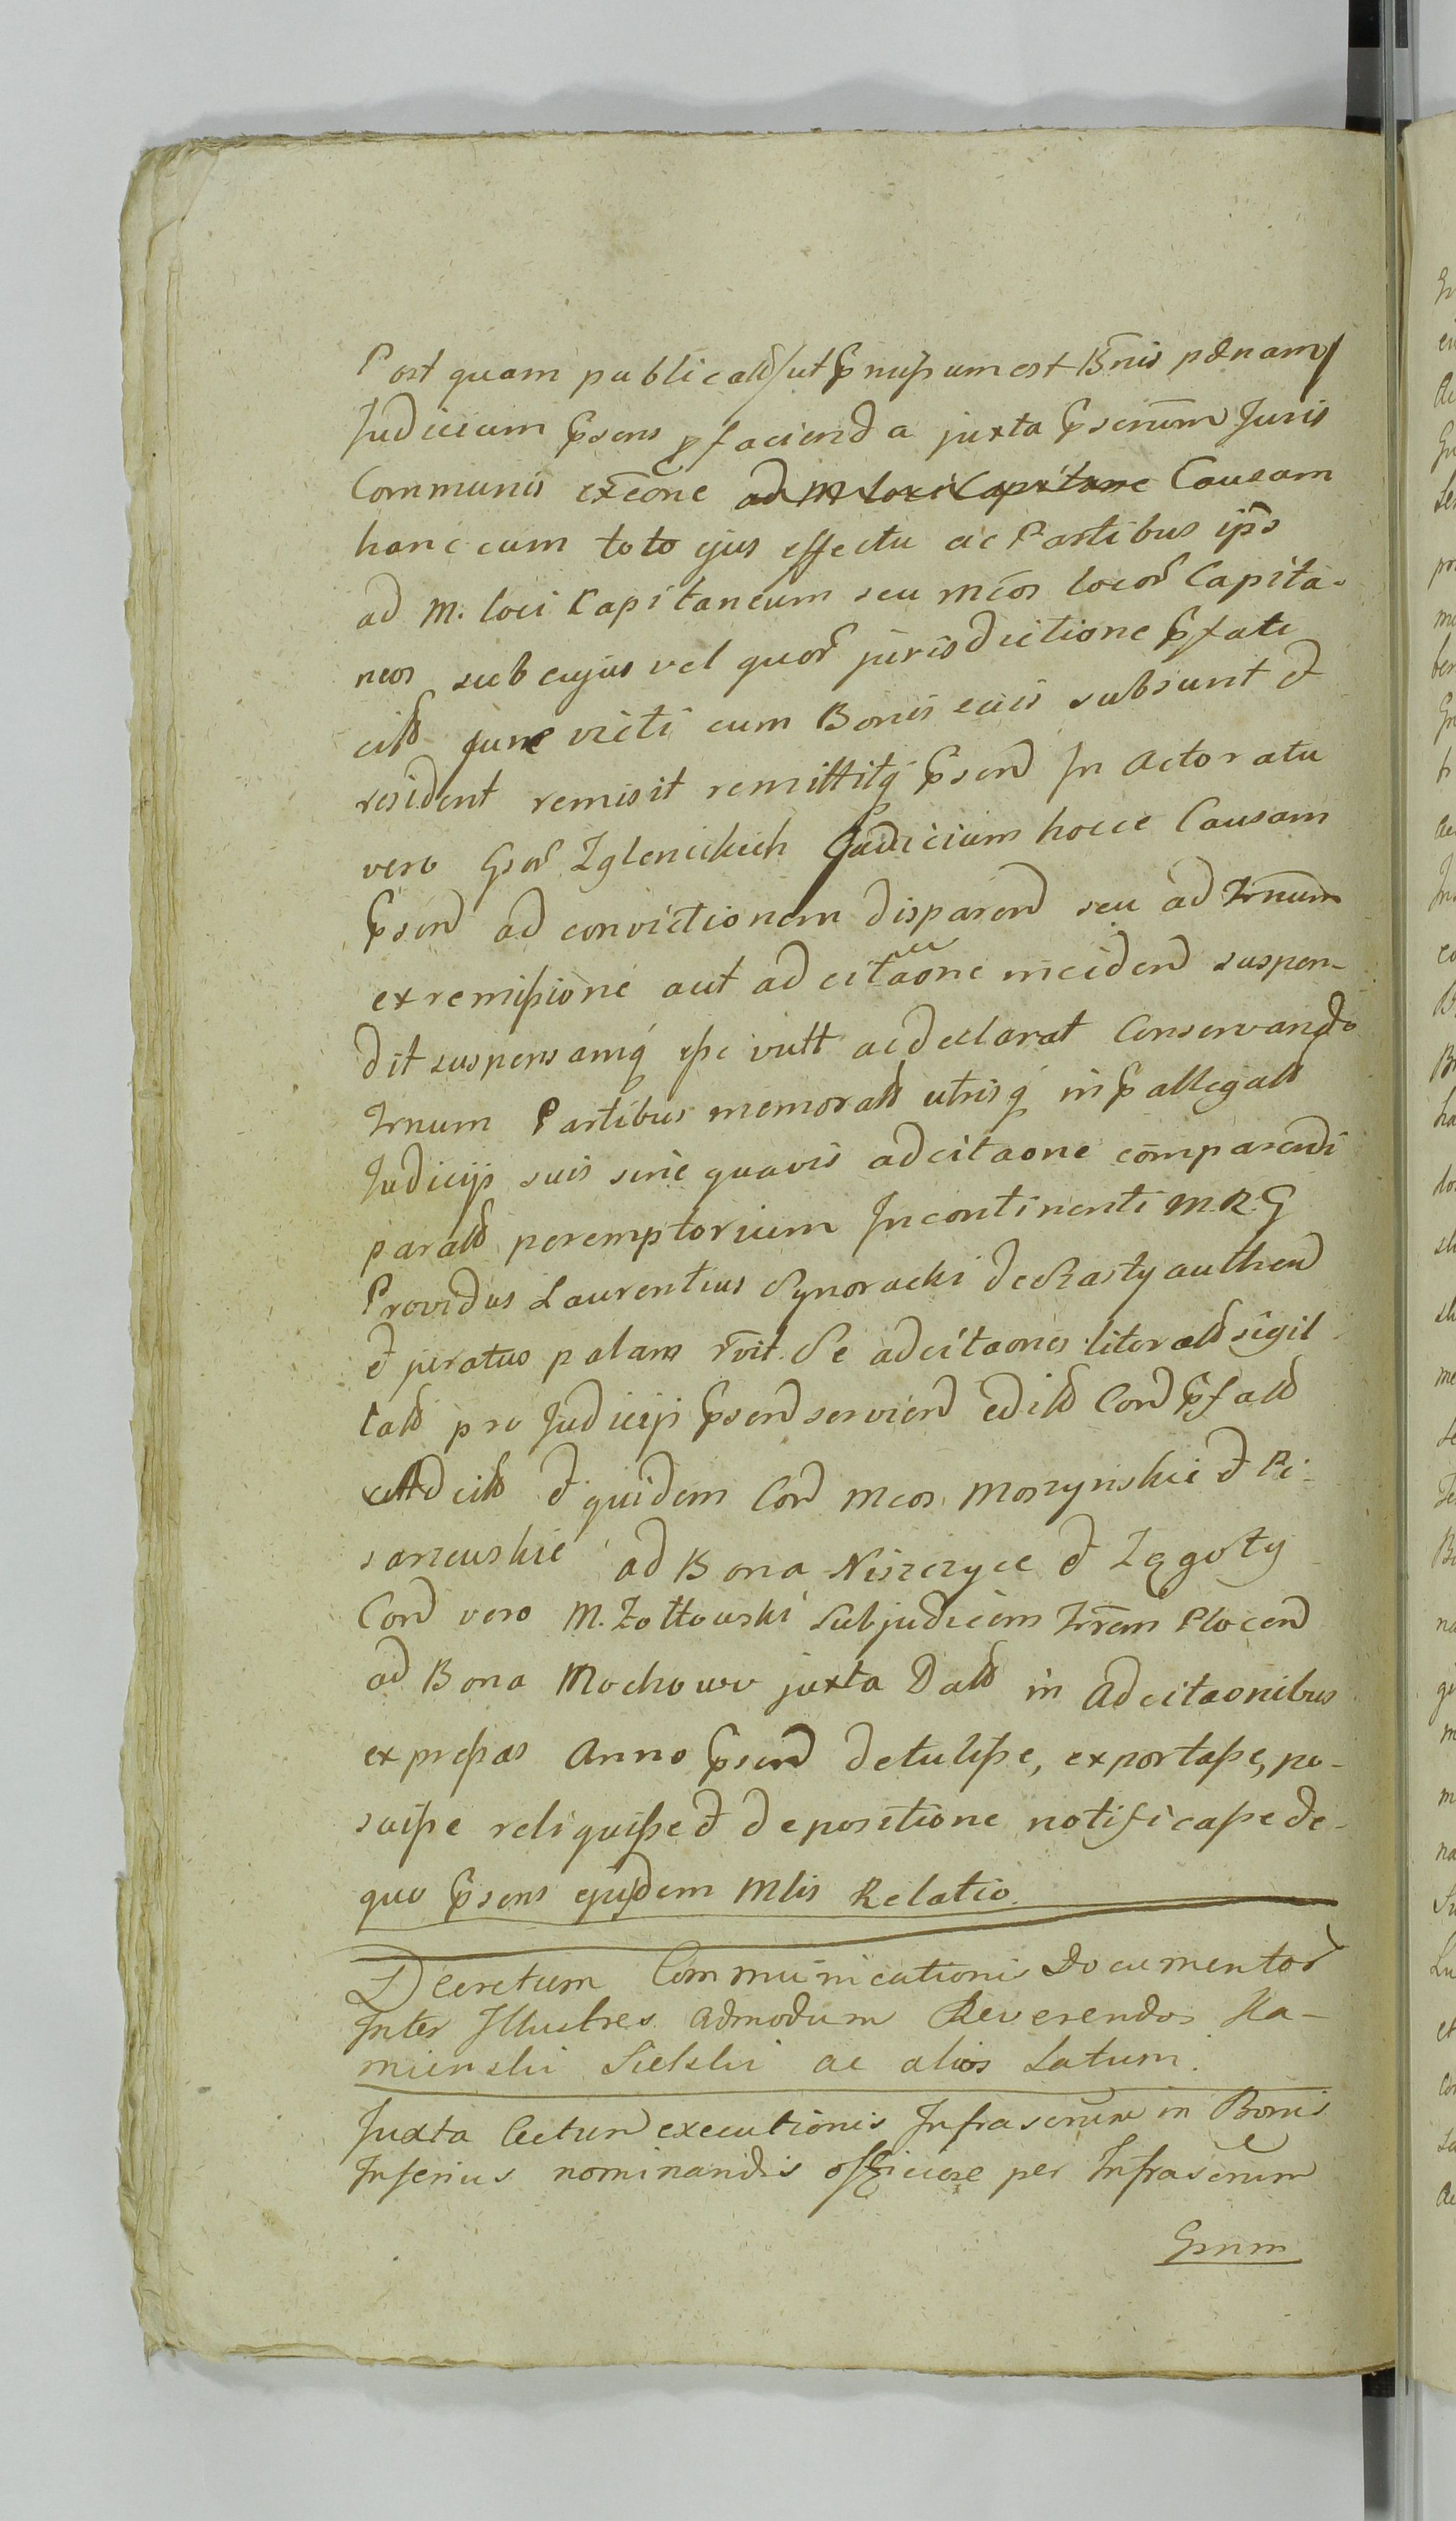 Post quam publicatt /ut pmissum est Bnis pænam/
Judicium psens p facienda juxta pserum Juris
Communis exeone ad M loci Capitane Causam
hanc cum toto ejus effectu ac Partibus ips
ad M. loci Capitaneum seu mcos locor Capita-
neos sub cujus vel quor jurisdictione pfati
citt jure victi cum Bonis suis subsunt et
resident remisit remittitq psend In Actoratu
vero Gsor Zglenickich Judicium hocce Causam
psend ad convictionem disparend seu ad Trnum
ex remissione aut adcitaone inciden suspen-
dit suspensamq esse vult ac declarat Conservando
Trnum Partibus memoratt utrisq in pallegatt
Judicijs suis sine quavis adcitaone comparendi
paratt peremptorium Incontinenti M.R.G
Providus Laurentius Synoracki de Rasty authend
et juratus palam rvit. Se adcitaones literatt sigil
latt pro Judicijs psend serviend editt Cord pfatt
citt et quidem Cord Mcos Moszynskie et Pi-
sarzewskie ad Bona Niszczyce et Zągoty
Cord vero M. Zołtowski Subjudicem Trrem Plocend
ad Bona Mochowo juxta Datt in Adcitaonibus
expressas Anno psend detulisse, exportasse, po-
suisse reliquisse et depositione notificasse de-
quo psens ejusdem Mlis Relatio.
Decretum Communicationis Documentor
Inter Illustres admodum Reverendos Ka-
mienski Sielski ac alios Latum.
Juxta Actum executionis Infrascrum in Bonis
Inferius nominandis officiose per Infrascrum
Gsrum